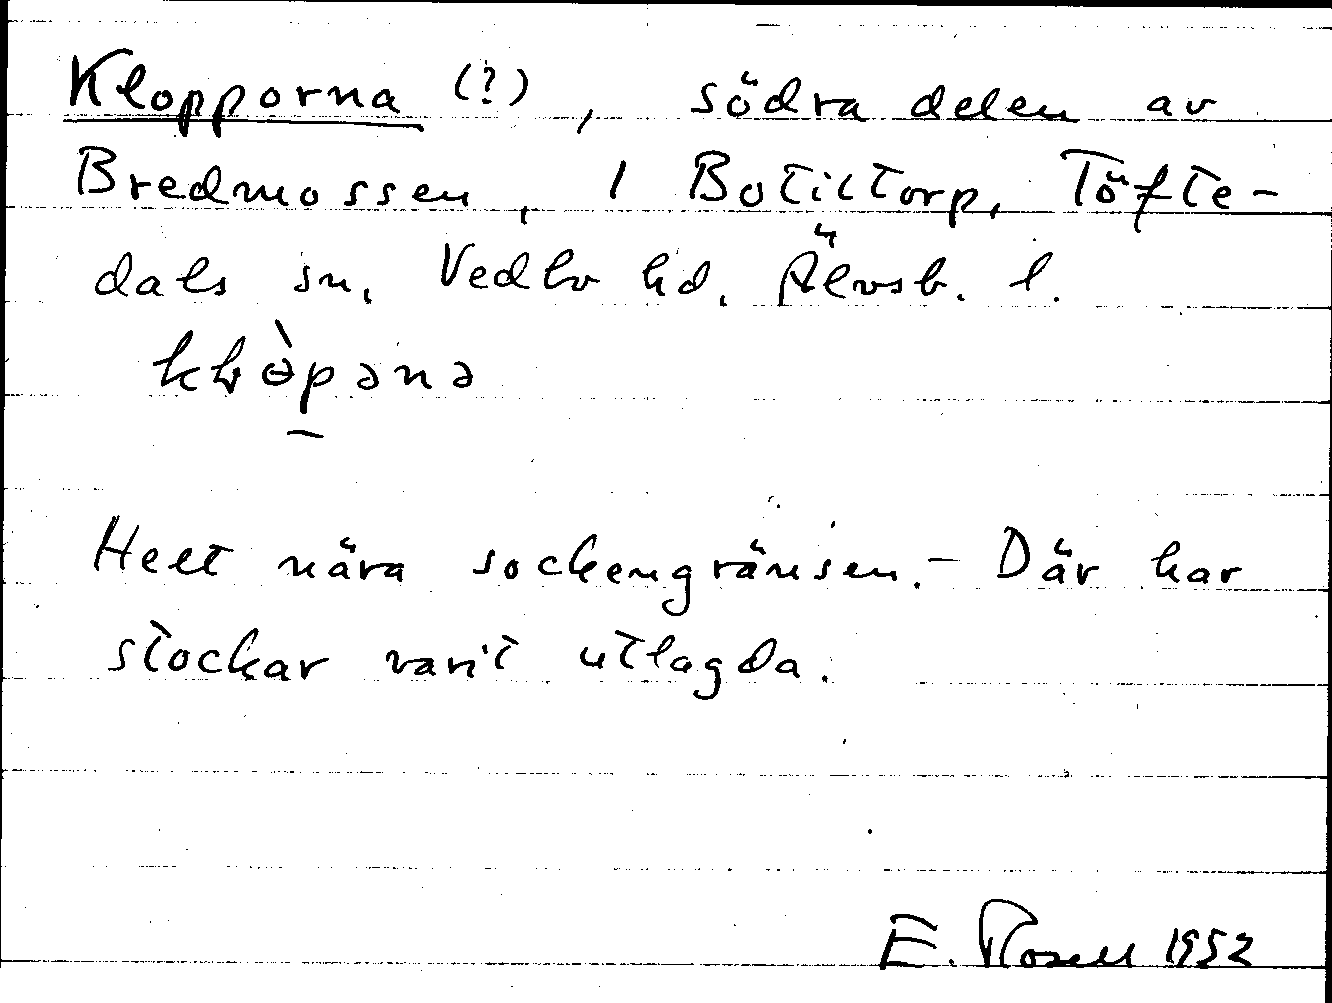 Klopporna (?), södra delen av
Bredmossen, 1 Botiltorp, Töfte-
dals sn, Vedbo hd, Älvsb. l.
Helt nära sockengränsen. - Där har
stockar varit utlagda.
E. Rosell 1952